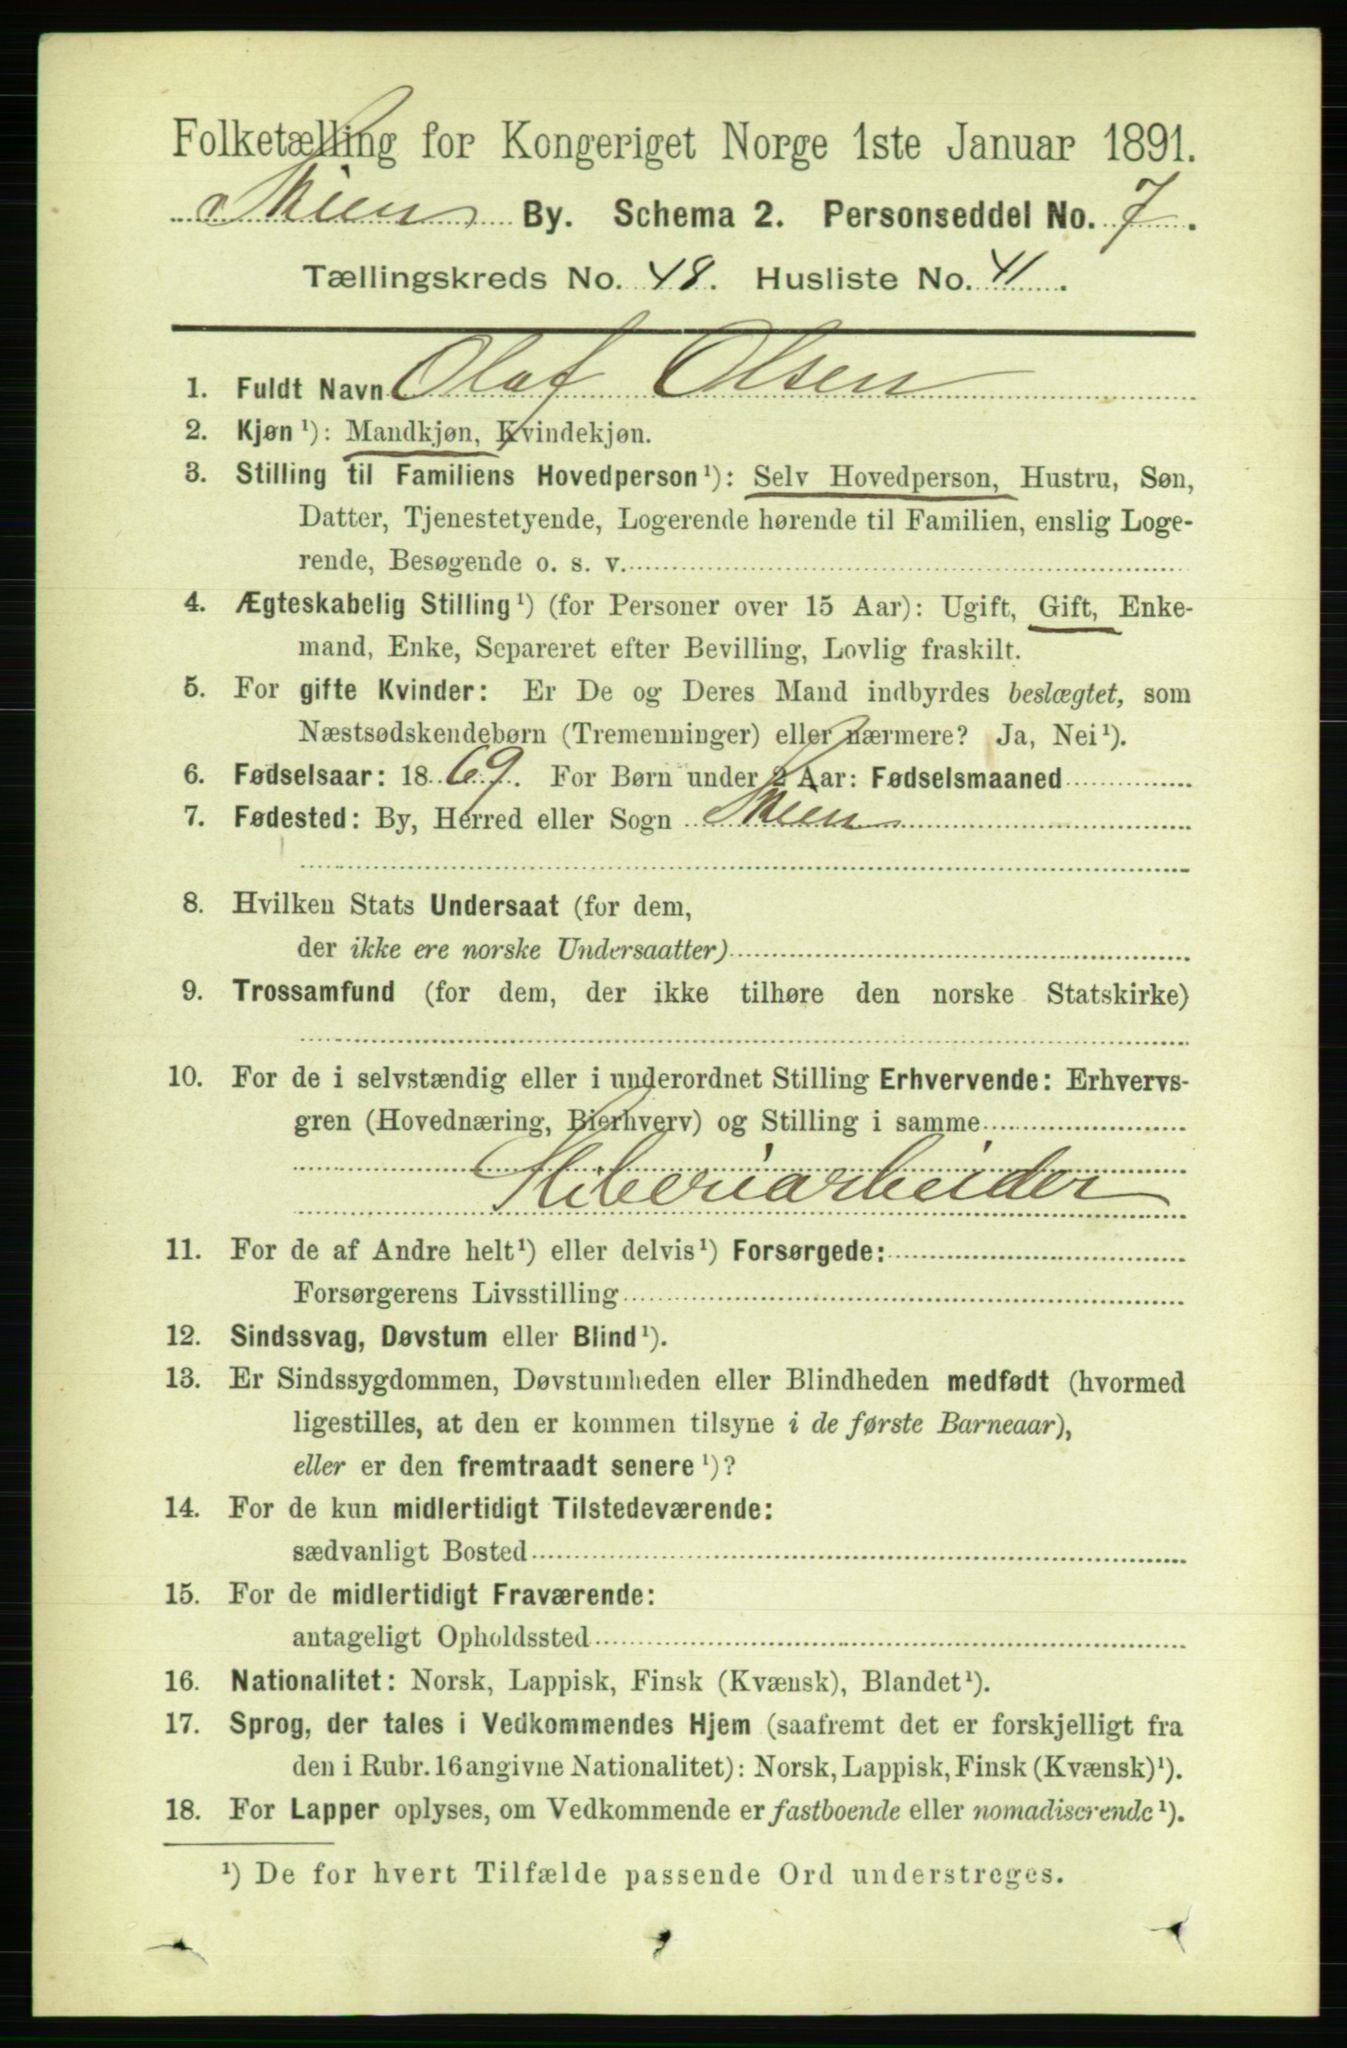 Folketælling for Kongeriget Norge 1ste Januar 1891.
Skien By. Schema 2. Personseddel No. 7.
Tællingskreds No. 48. Husliste No. 41.
1. Fuldt Navn Olaf Olsen
2. Kjøn¹): Mandkjøn, Kvindekjøn.
3. Stilling til Familiens Hovedperson¹): Selv Hovedperson, Hustru, Søn,
Datter, Tjenestetyende, Logerende hørende til Familien, enslig Loge-
rende, Besøgende o. s. v.
4. Ægteskabelig Stilling¹) (for Personer over 15 Aar): Ugift, Gift, Enke-
mand, Enke, Separeret efter Bevilling, Lovlig fraskilt.
5. For gifte Kvinder: Er De og Deres Mand indbyrdes beslægtet, som
Næstsødskendebørn (Tremenninger) eller nærmere? Ja, Nei¹).
6. Fødselsaar: 1869. For Børn under 2 Aar: Fødselsmaaned
7. Fødested: By, Herred eller Sogn Skien
8. Hvilken Stats Undersaat (for dem,
der ikke ere norske Undersaatter)
9. Trossamfund (for dem, der ikke tilhøre den norske Statskirke)
10. For de i selvstændig eller i underordnet Stilling Erhvervende: Erhvervs-
gren (Hovednæring, Bierhverv) og Stilling i samme
Sliberiarbeider
11. For de af Andre helt¹) eller delvis¹) Forsørgede:
Forsørgerens Livsstilling
12. Sindssvag, Døvstum eller Blind¹).
13. Er Sindssygdommen, Døvstumheden eller Blindheden medfødt (hvormed
ligestilles, at den er kommen tilsyne i de første Barneaar),
eller er den fremtraadt senere¹)?
14. For de kun midlertidigt Tilstedeværende:
sædvanligt Bosted
15. For de midlertidigt Fraværende:
antageligt Opholdssted
16. Nationalitet: Norsk, Lappisk, Finsk (Kvænsk), Blandet¹).
17. Sprog, der tales i Vedkommendes Hjem (saafremt det er forskjelligt fra
den i Rubr. 16 angivne Nationalitet): Norsk, Lappisk, Finsk (Kvænsk)¹).
18. For Lapper oplyses, om Vedkommende er fastboende eller nomadiserende¹).
¹) De for hvert Tilfælde passende Ord understreges.